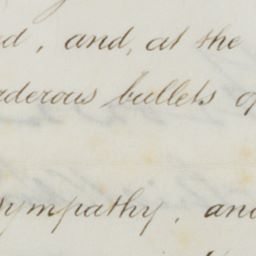 d, and, at the
rderous bullets of
sympathy, and